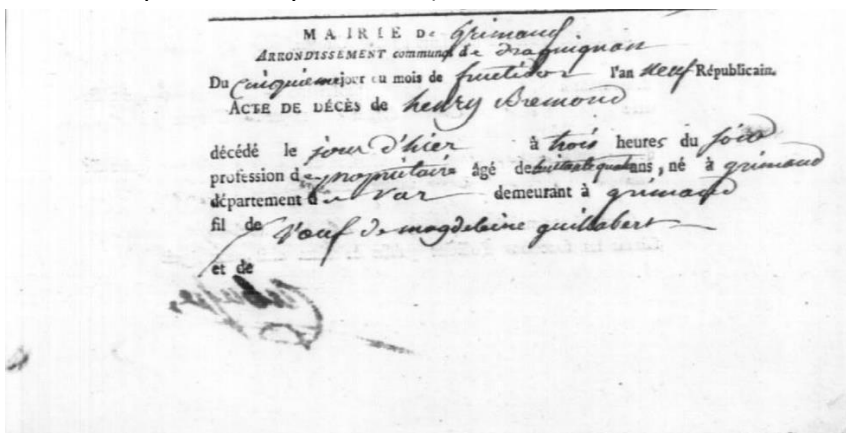 MAIRIE De Grimaud
ARRONDISSEMENT communal de Draguignan
Du Cinquieme jour du mois de fructidor l'an neuf Républicain.
ACTE DE DÉCÈS de henry Bremond
décédé le jour d'hier à trois heures du soir
profession de propriétaire âgé de huitante quatre ans, né à grimaud
département du Var demeurant à grimaud
fil de Veuf de magdeleine guillabert
et de